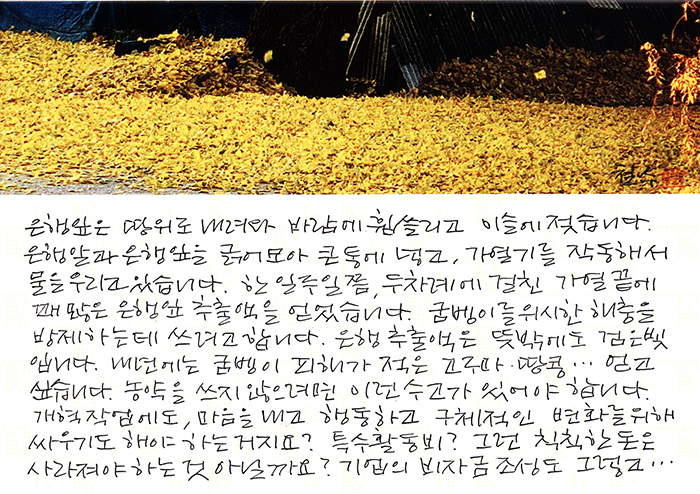 철수
은행잎은 땅위로 내려와 바람에 휩쓸리고 이슬에 젖습니다.
은행알과 은행잎을 긁어모아 큰 통에 넣고, 가열기를 작동해서
물을 우리고 있습니다. 한 일주일쯤, 두차례에 걸친 가열 끝에
꽤 많은 은행잎 추출액을 얻었습니다. 굼벵이를 위시한 해충을
방제하는데 쓰려고 합니다. 은행 추출액은 뜻밖에도 검은빛
입니다. 내년에는 굼벵이 피해가 적은 고구마·땅콩… 얻고
싶습니다. 농약을 쓰지 않으려면 이런 수고가 있어야 합니다.
개혁작업에도, 마음을 내고 행동하고 구체적인 변화를 위해
싸우기도 해야 하는거지요? 특수활동비? 그런 칙칙한 돈은
사라져야 하는 것 아닐까요? 기업의 비자금 조성도 그렇고…